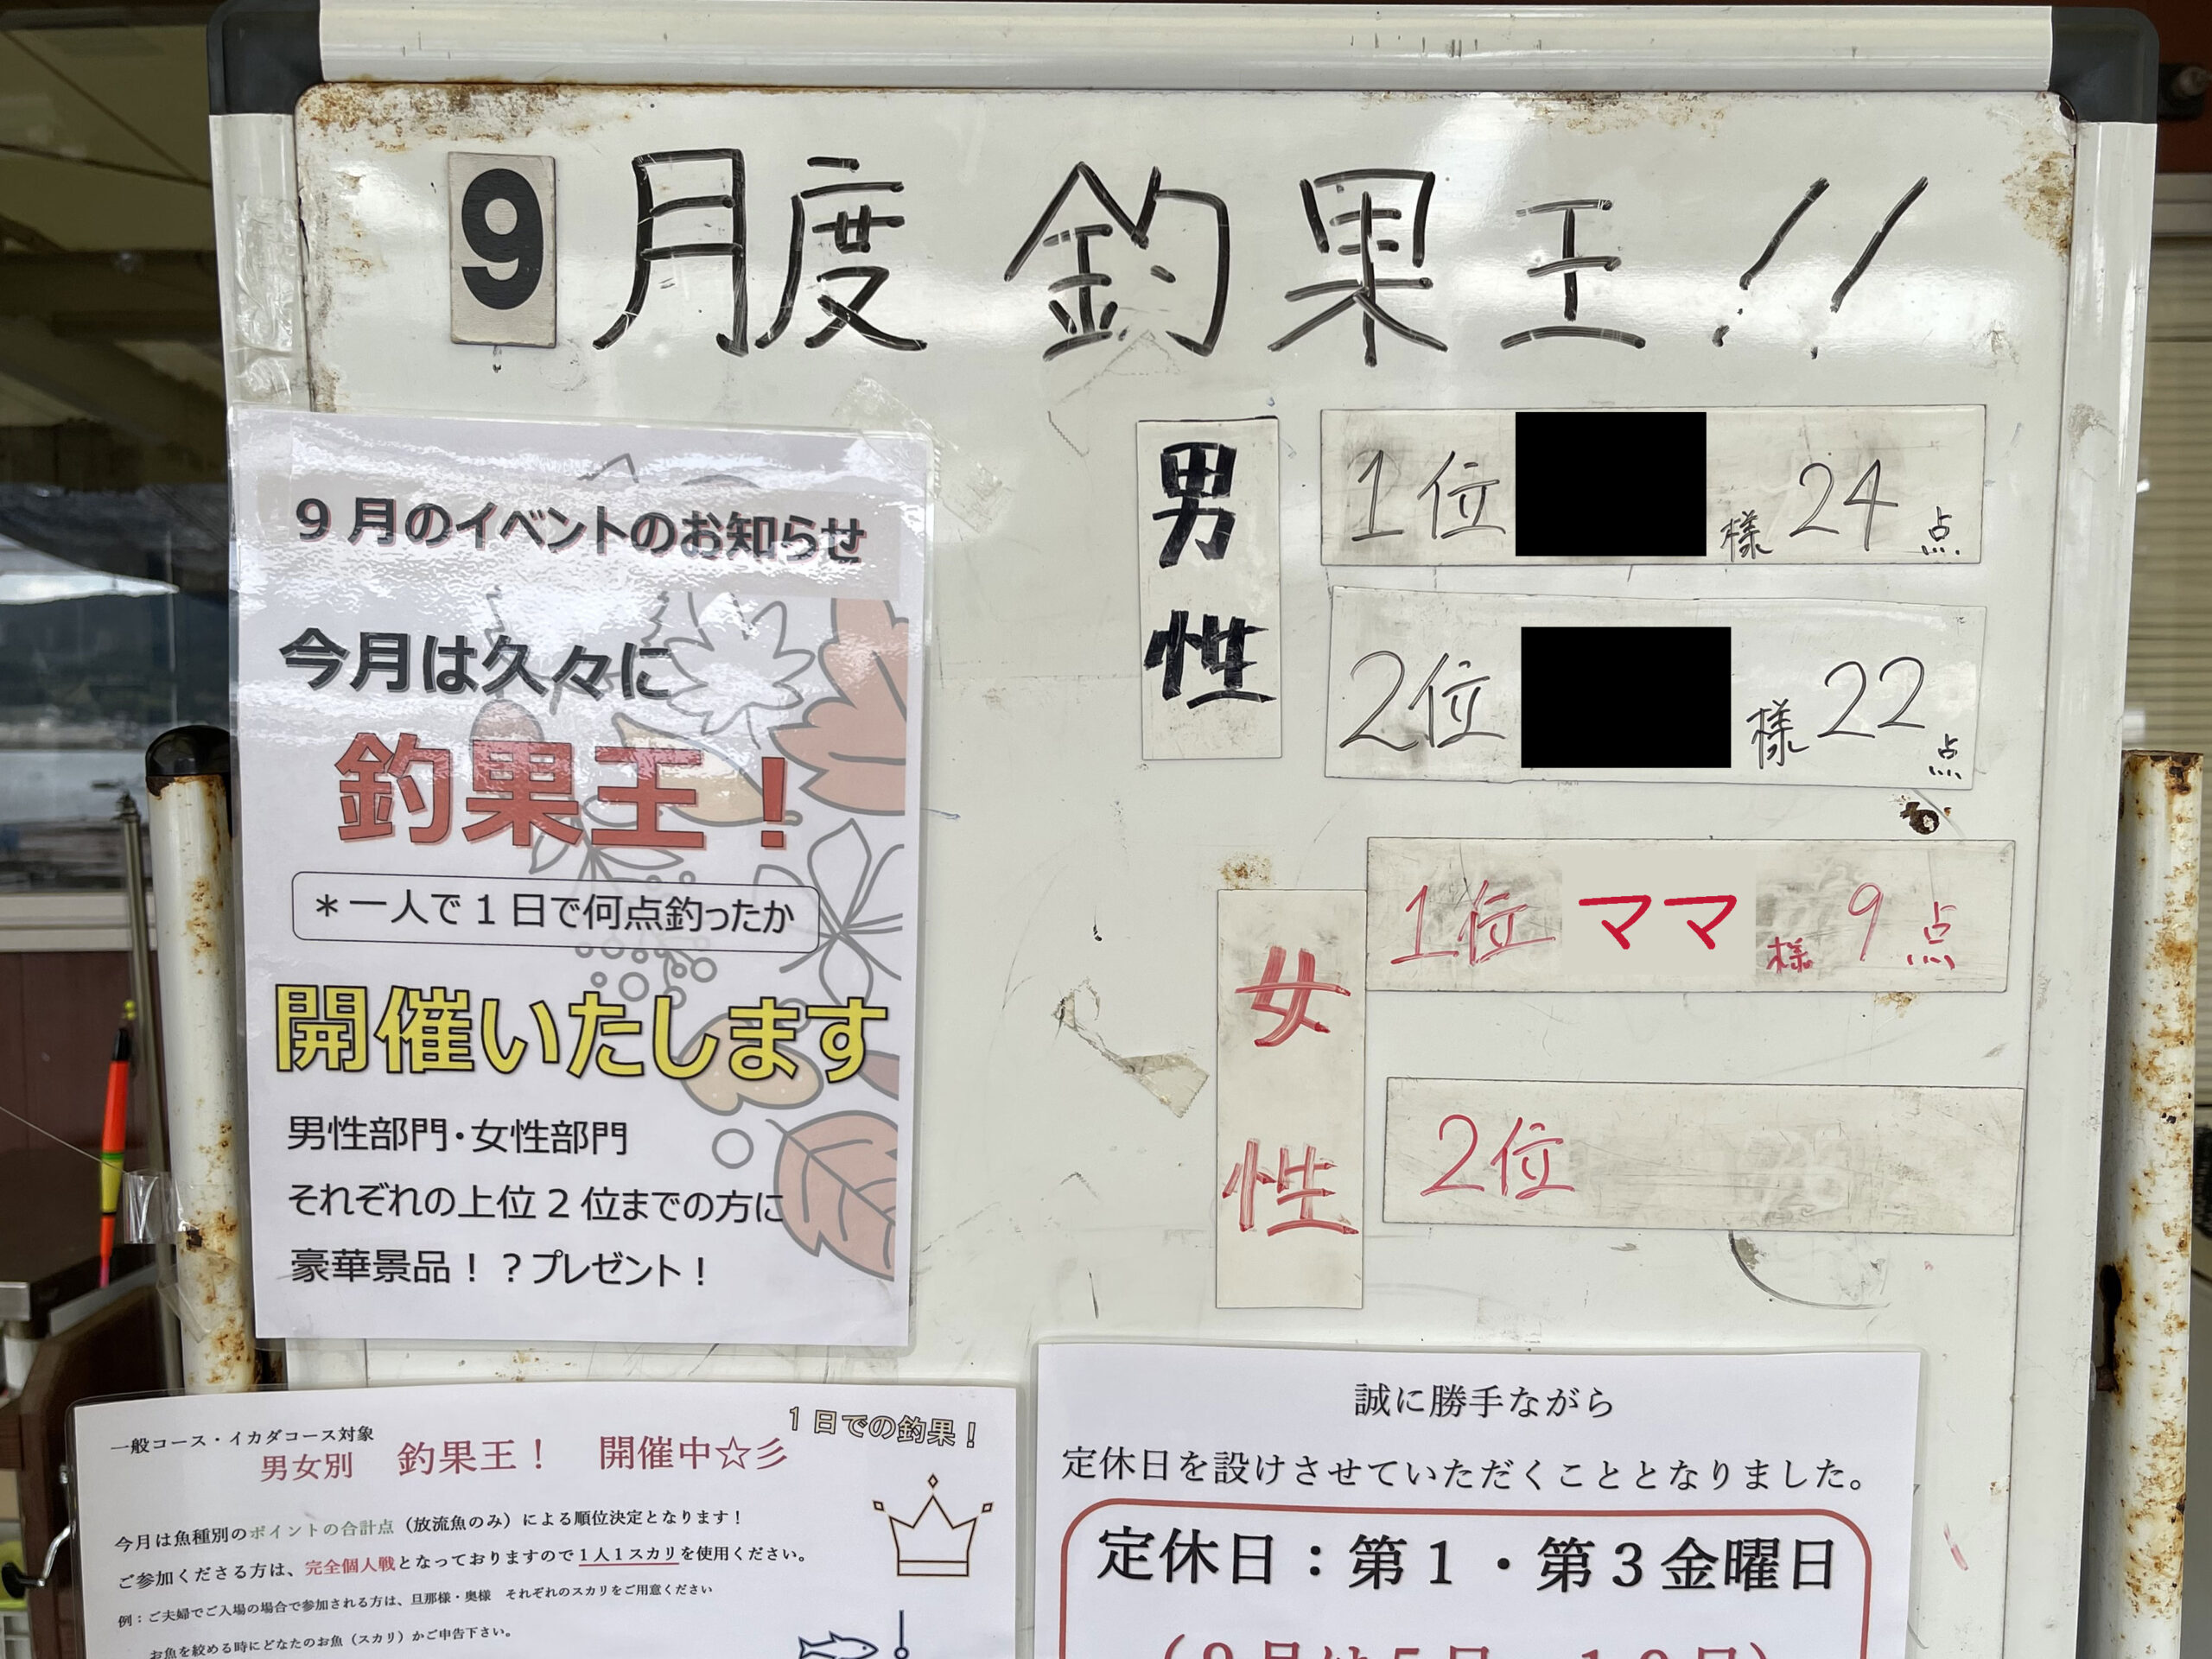 9月度 釣果王!!
男性
1位 様 24点
2位 様 22点
女性
1位 ママ 様 9点
2位
9月のイベントのお知らせ
今月は久々に
釣果王！
＊一人で1日で何点釣ったか
開催いたします
男性部門・女性部門
それぞれの上位2位までの方に
豪華景品！？プレゼント！
一般コース・イカダコース対象
1日での釣果！
男女別 釣果王！ 開催中☆彡
今月は魚種別のポイントの合計点（放流魚のみ）による順位決定となります！
ご参加くださる方は、完全個人戦となっておりますので1人1スカリを使用ください。
例：ご夫婦でご入場の場合で参加される方は、旦那様・奥様 それぞれのスカリをご用意ください
お魚を絞める時にどなたのお魚（スカリ）かご申告下さい。
誠に勝手ながら
定休日を設けさせていただくこととなりました。
定休日：第1・第3金曜日